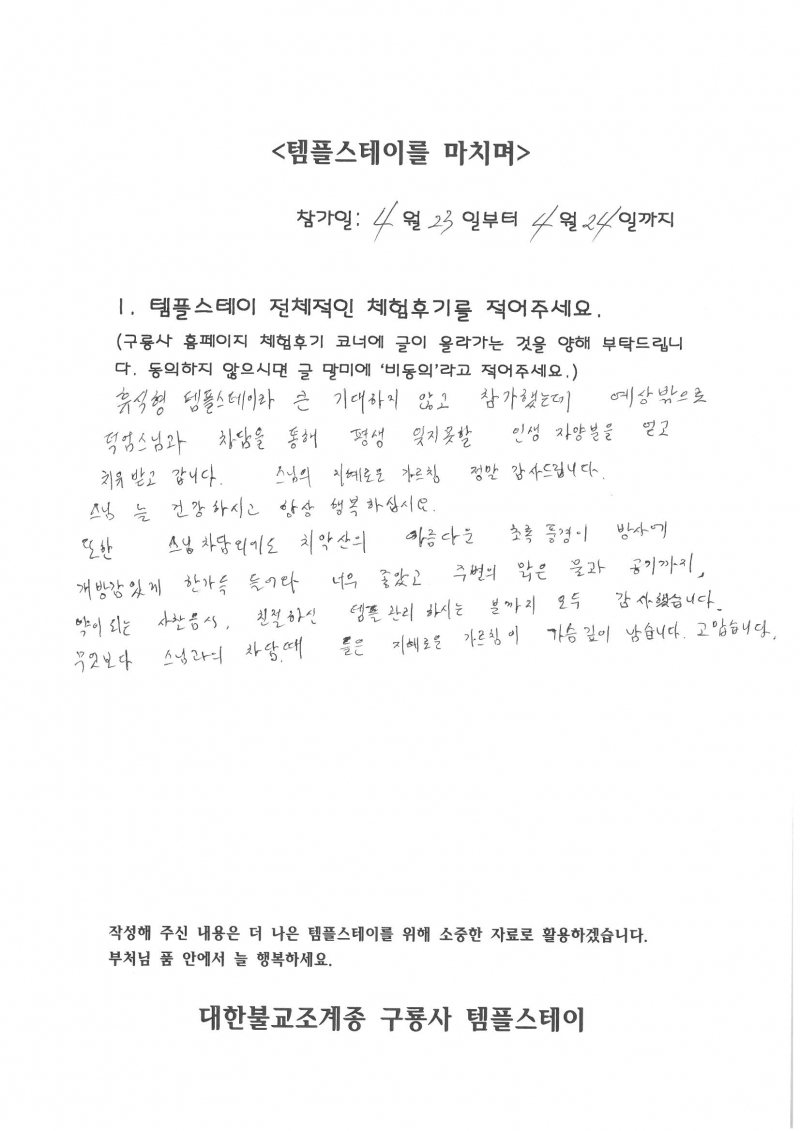 <템플스테이를 마치며>
참가일: 4월 23일부터 4월 24일까지
1. 템플스테이 전체적인 체험후기를 적어주세요.
(구룡사 홈페이지 체험후기 코너에 글이 올라가는 것을 양해 부탁드립니
다. 동의하지 않으시면 글 말미에 '비동의'라고 적어주세요.)
휴식형 템플스테이라 큰 기대하지 않고 참가했는데 예상밖으로
덕엄스님과 차담을 통해 평생 잊지못할 인생 자양분을 얻고
치유 받고 갑니다. 스님의 지혜로운 가르침 정말 감사드립니다.
스님 늘 건강하시고 항상 행복하십시요.
또한 스님 차담외에도 치악산의 아름다운 초록 풍경이 방사에
개방감있게 한가득 들어와 너무 좋았고 주변의 맑은 물과 공기까지,
약이 되는 사찬음식, 친절하신 템플관리 하시는 분까지 모두 감사했습니다.
무엇보다 스님과의 차담때 들은 지혜로운 가르침이 가슴깊이 남습니다. 고맙습니다.
작성해 주신 내용은 더 나은 템플스테이를 위해 소중한 자료로 활용하겠습니다.
부처님 품 안에서 늘 행복하세요.
대한불교조계종 구룡사 템플스테이